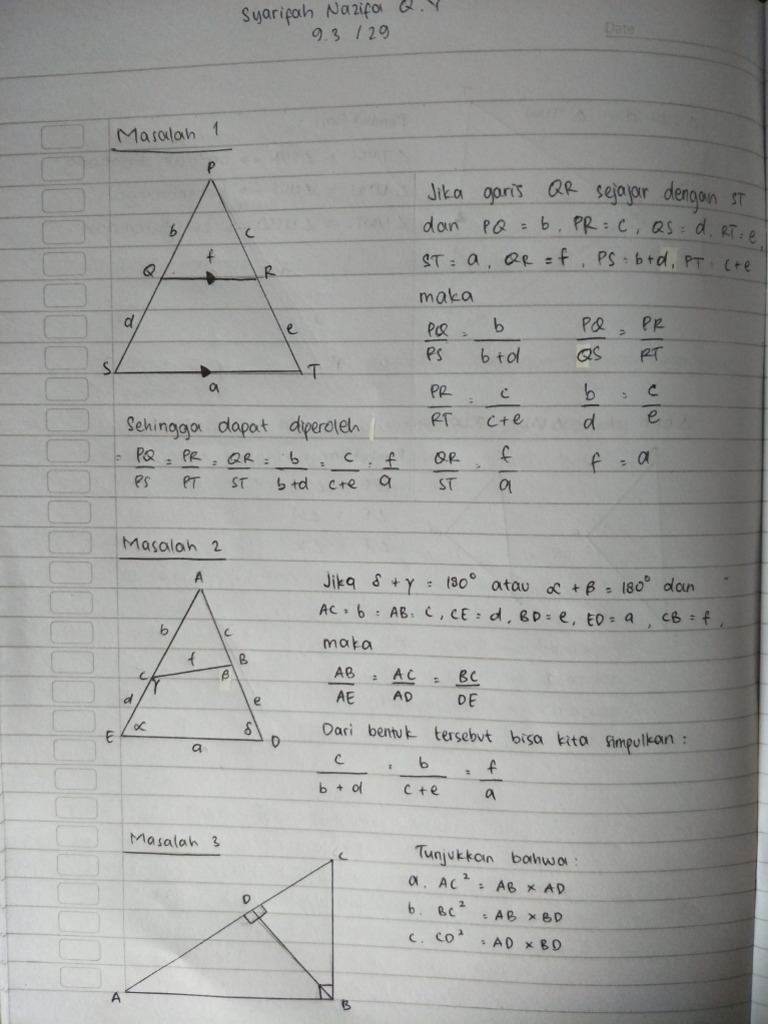 Syarifah Nazifa Q.Y
9.3 / 29
Date
Masalah 1
P
b
c
f
Q
R
d
e
S
T
a
Jika garis QR sejajar dengan ST
dan PQ = b, PR = c, QS = d, RT = e,
ST = a, QR = f, PS = b+d, PT = c+e
maka
PQ/PS = b/b+d PQ/QS = PR/RT
PR/RT = c/c+e b/d = c/e
QR/ST = f/a f = a
Sehingga dapat diperoleh
= PQ/PS = PR/PT = QR/ST = b/b+d = c/c+e = f/a
Masalah 2
A
b
c
f
C
B
γ
β
d
e
E
α
δ
D
a
Jika δ + γ = 180° atau α + β = 180° dan
AC = b = AB = c, CE = d, BD = e, ED = a, CB = f,
maka
AB/AE = AC/AD = BC/DE
Dari bentuk tersebut bisa kita simpulkan :
c/b + d = b/c + e = f/a
Masalah 3
C
D
A
B
Tunjukkan bahwa :
a. AC² = AB × AD
b. BC² = AB × BD
c. CD² = AD × BD